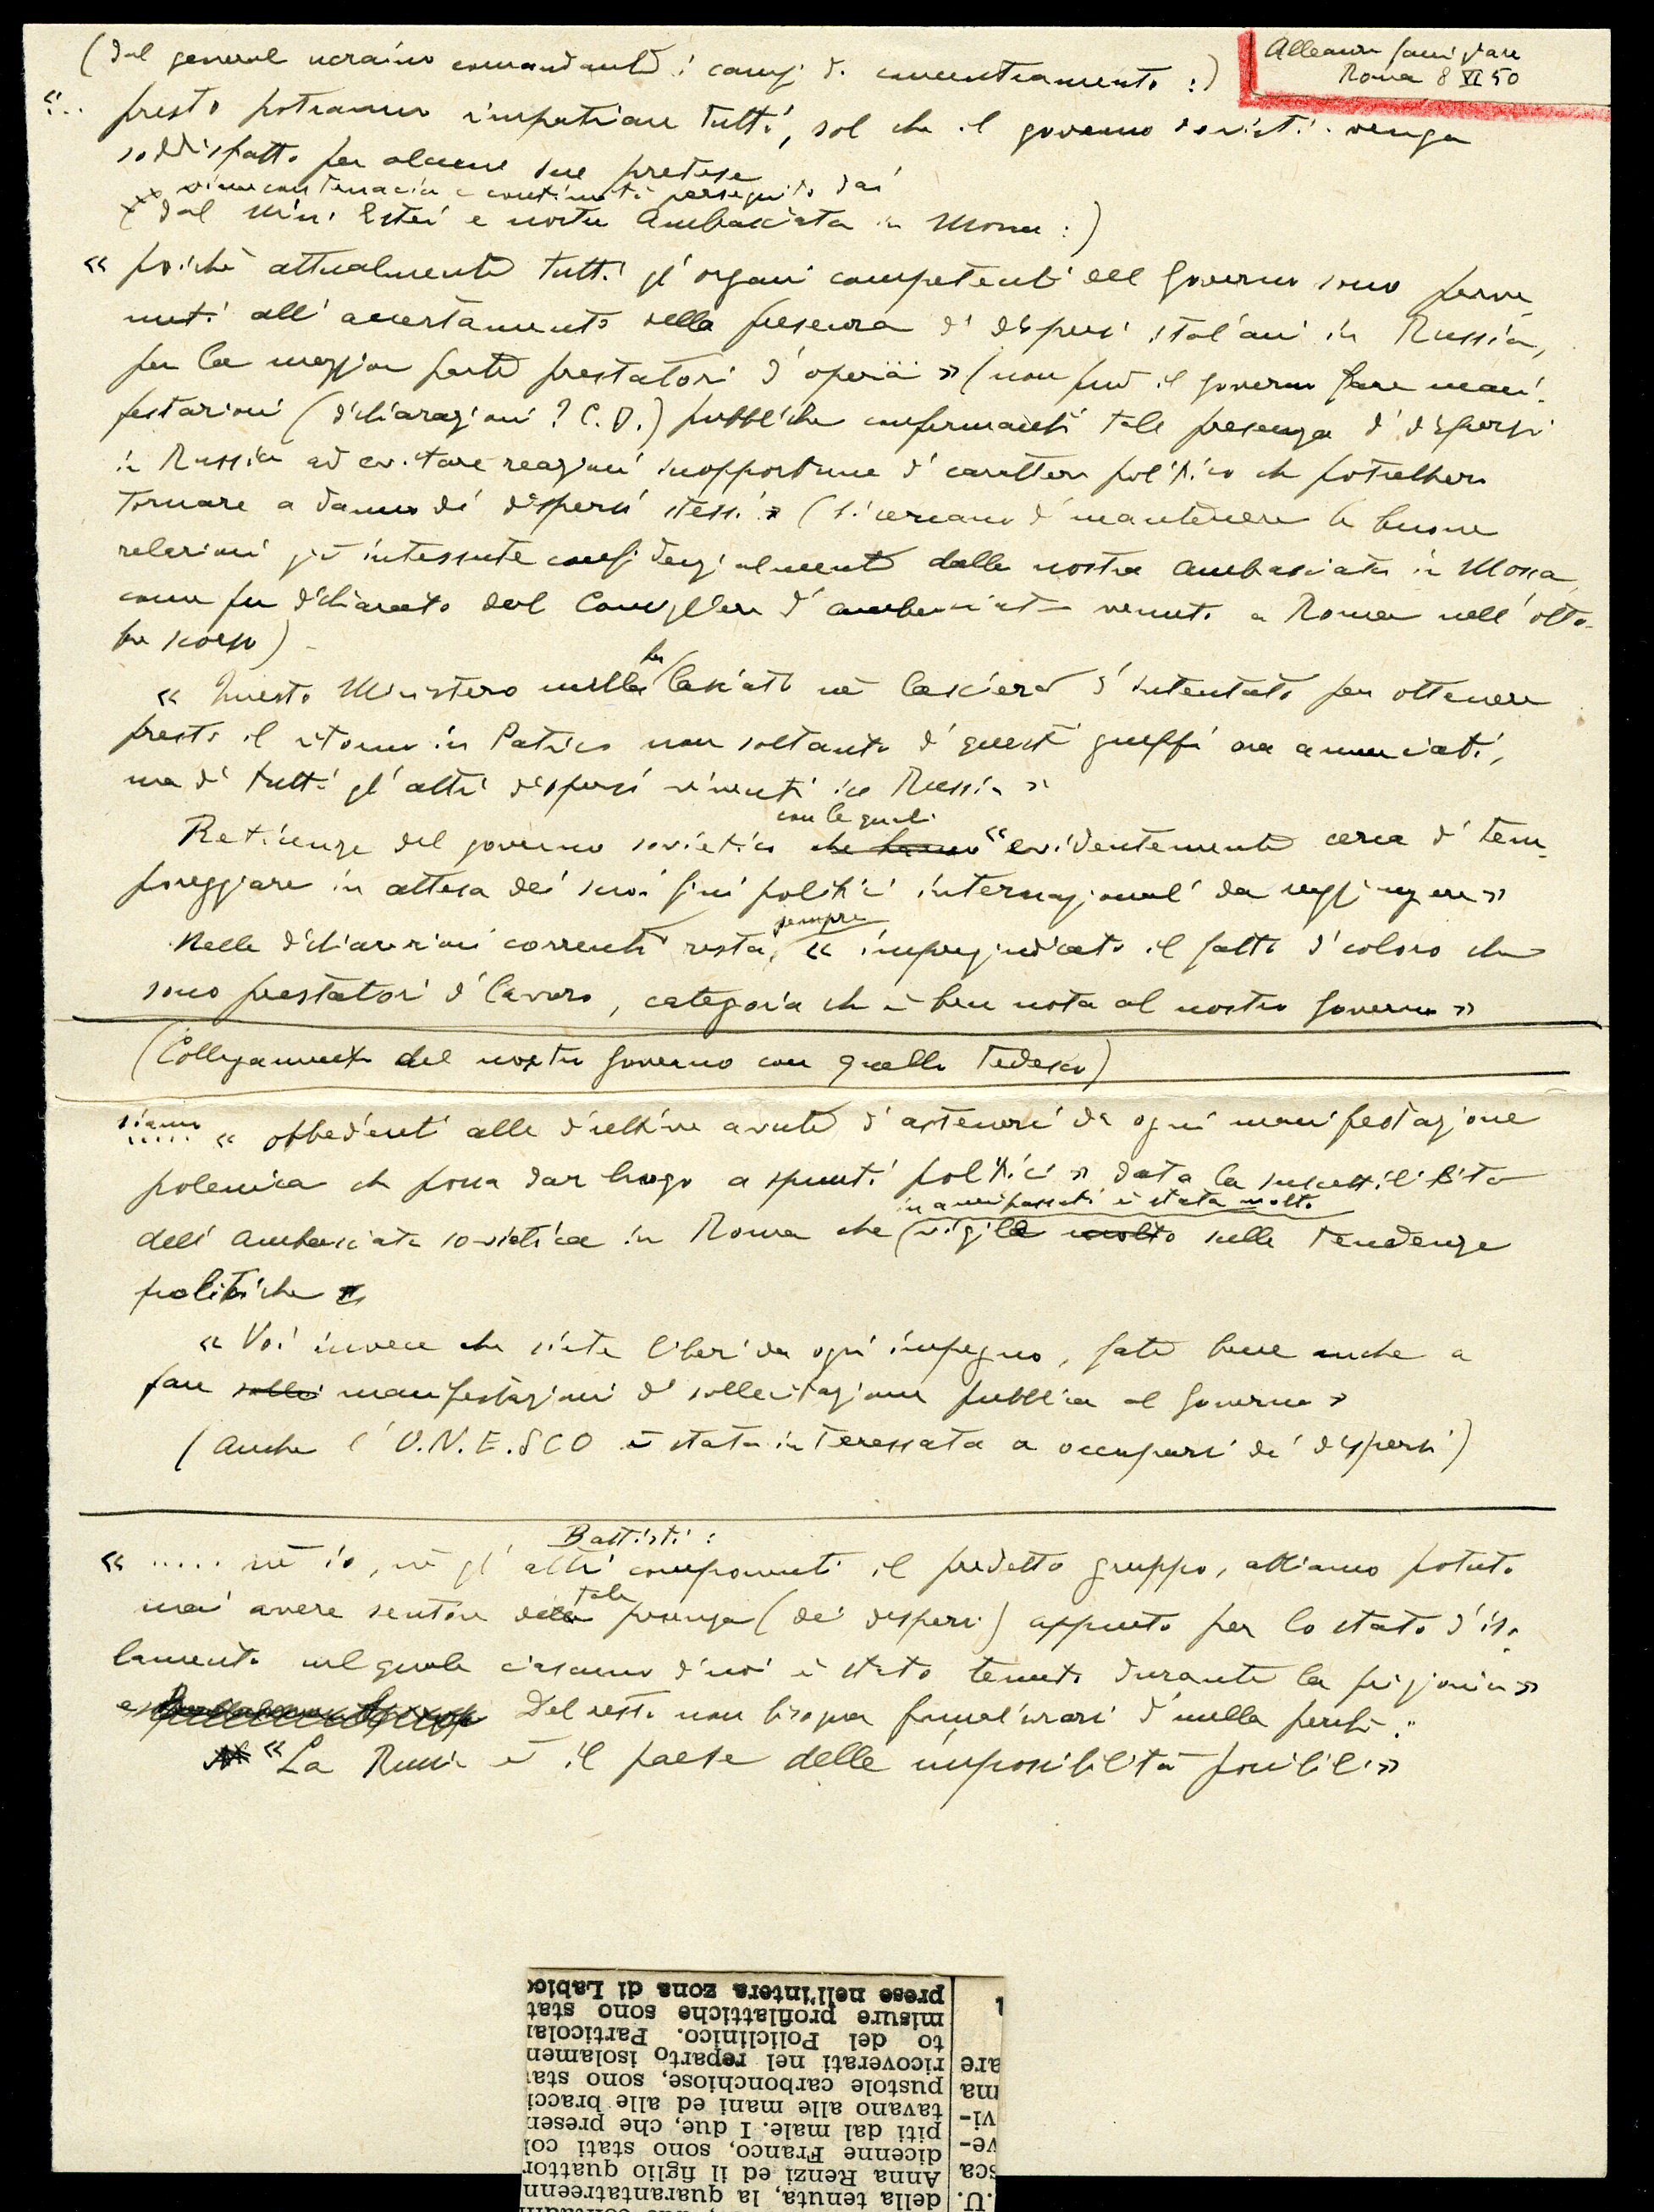 Alleanza famigliare
Roma 8 XI 50
(dal general ucraino comandante i campi di concentramento :)
«... presto potranno rimpatriare tutti, sol che il governo sovietic. venga
soddisfatto per alcune sue pretese
vime con tenacia e continuità perseguito dai
dal Min. Esteri e nostra Ambasciata in Mosca :)
« poichè attualmente tutti gl'organi competenti del Governo sono perve-
nuti all'accertamento della presenza di dispersi italiani in Russia,
per la maggior parte prestatori d'opera » (non può il governo fare mani-
festazioni (dichiarazioni ? C.D.) pubbliche confermanti tale presenza di dispersi
in Russia ad evitare reazioni inopportune di carattere politico che potrebbero
tornare a danno dei dispersi stessi » (si cercano di mantenere le buone
relazioni già intessute confidenzialmente dalla nostra Ambasciata in Mosca
come fu dichiarato dal Consigliere d'ambasciata venuto a Roma nell'otto-
bre scorso) -
« Questo Ministero nulla ha lasciato nè lascierà d'intentato per ottenere
presto il ritorno in Patria non soltanto di questi gruppi ora annunciati,
ma di tutti gl'altri dispersi viventi in Russia »
Reticenze del governo sovietico che hanno con le quali « evidentemente cerca di tem-
poreggiare in attesa dei suoi fini politici internazionali da raggiungere »
Nelle dichiarazioni correnti resta sempre « impregiudicato il fatto di coloro che
sono prestatori di lavoro, categoria che è ben nota al nostro Governo »
(Collegamento del nostro Governo con quello tedesco)
siamo
..... « obbedienti alle direttive avute d'astenersi da ogni manifestazione
polemica che possa dar luogo a spunti politici » data la suscettibilità
dell'Ambasciata sovietica in Roma che in anni passati è stata molto vigile molto sulle tendenze
politiche
« Voi invece che siete liberi da ogni impegno, fate bene anche a
fare solleci manifestazioni di sollecitazione pubblica al Governo »
(anche l'U.N.E.SCO è stata interessata a occuparsi dei dispersi)
Battisti :
« ..... nè io, nè gl'altri componenti il predetto gruppo, abbiamo potuto
mai avere sentore della tale presenza (dei dispersi) appunto per lo stato d'iso-
lamento nel quale ciascuno di noi è stato tenuto durante la prigionia »
e Del resto non bisogna formalizzarsi di nulla perchè :
« La Russia è il paese delle impossibilità possibili »
.U. della tenuta, la quarantatreenn
sca Anna Renzi ed il figlio quattor
ve- dicenne Franco, sono stati col
vi- piti dal male. I due, che presen
tavano alle mani ed alle bracci
ma pustole carbonchiose, sono stat
are ricoverati nel reparto isolamen
to del Policlinico. Particolar
misure profilattiche sono stat
prese nell'intera zona di Labico